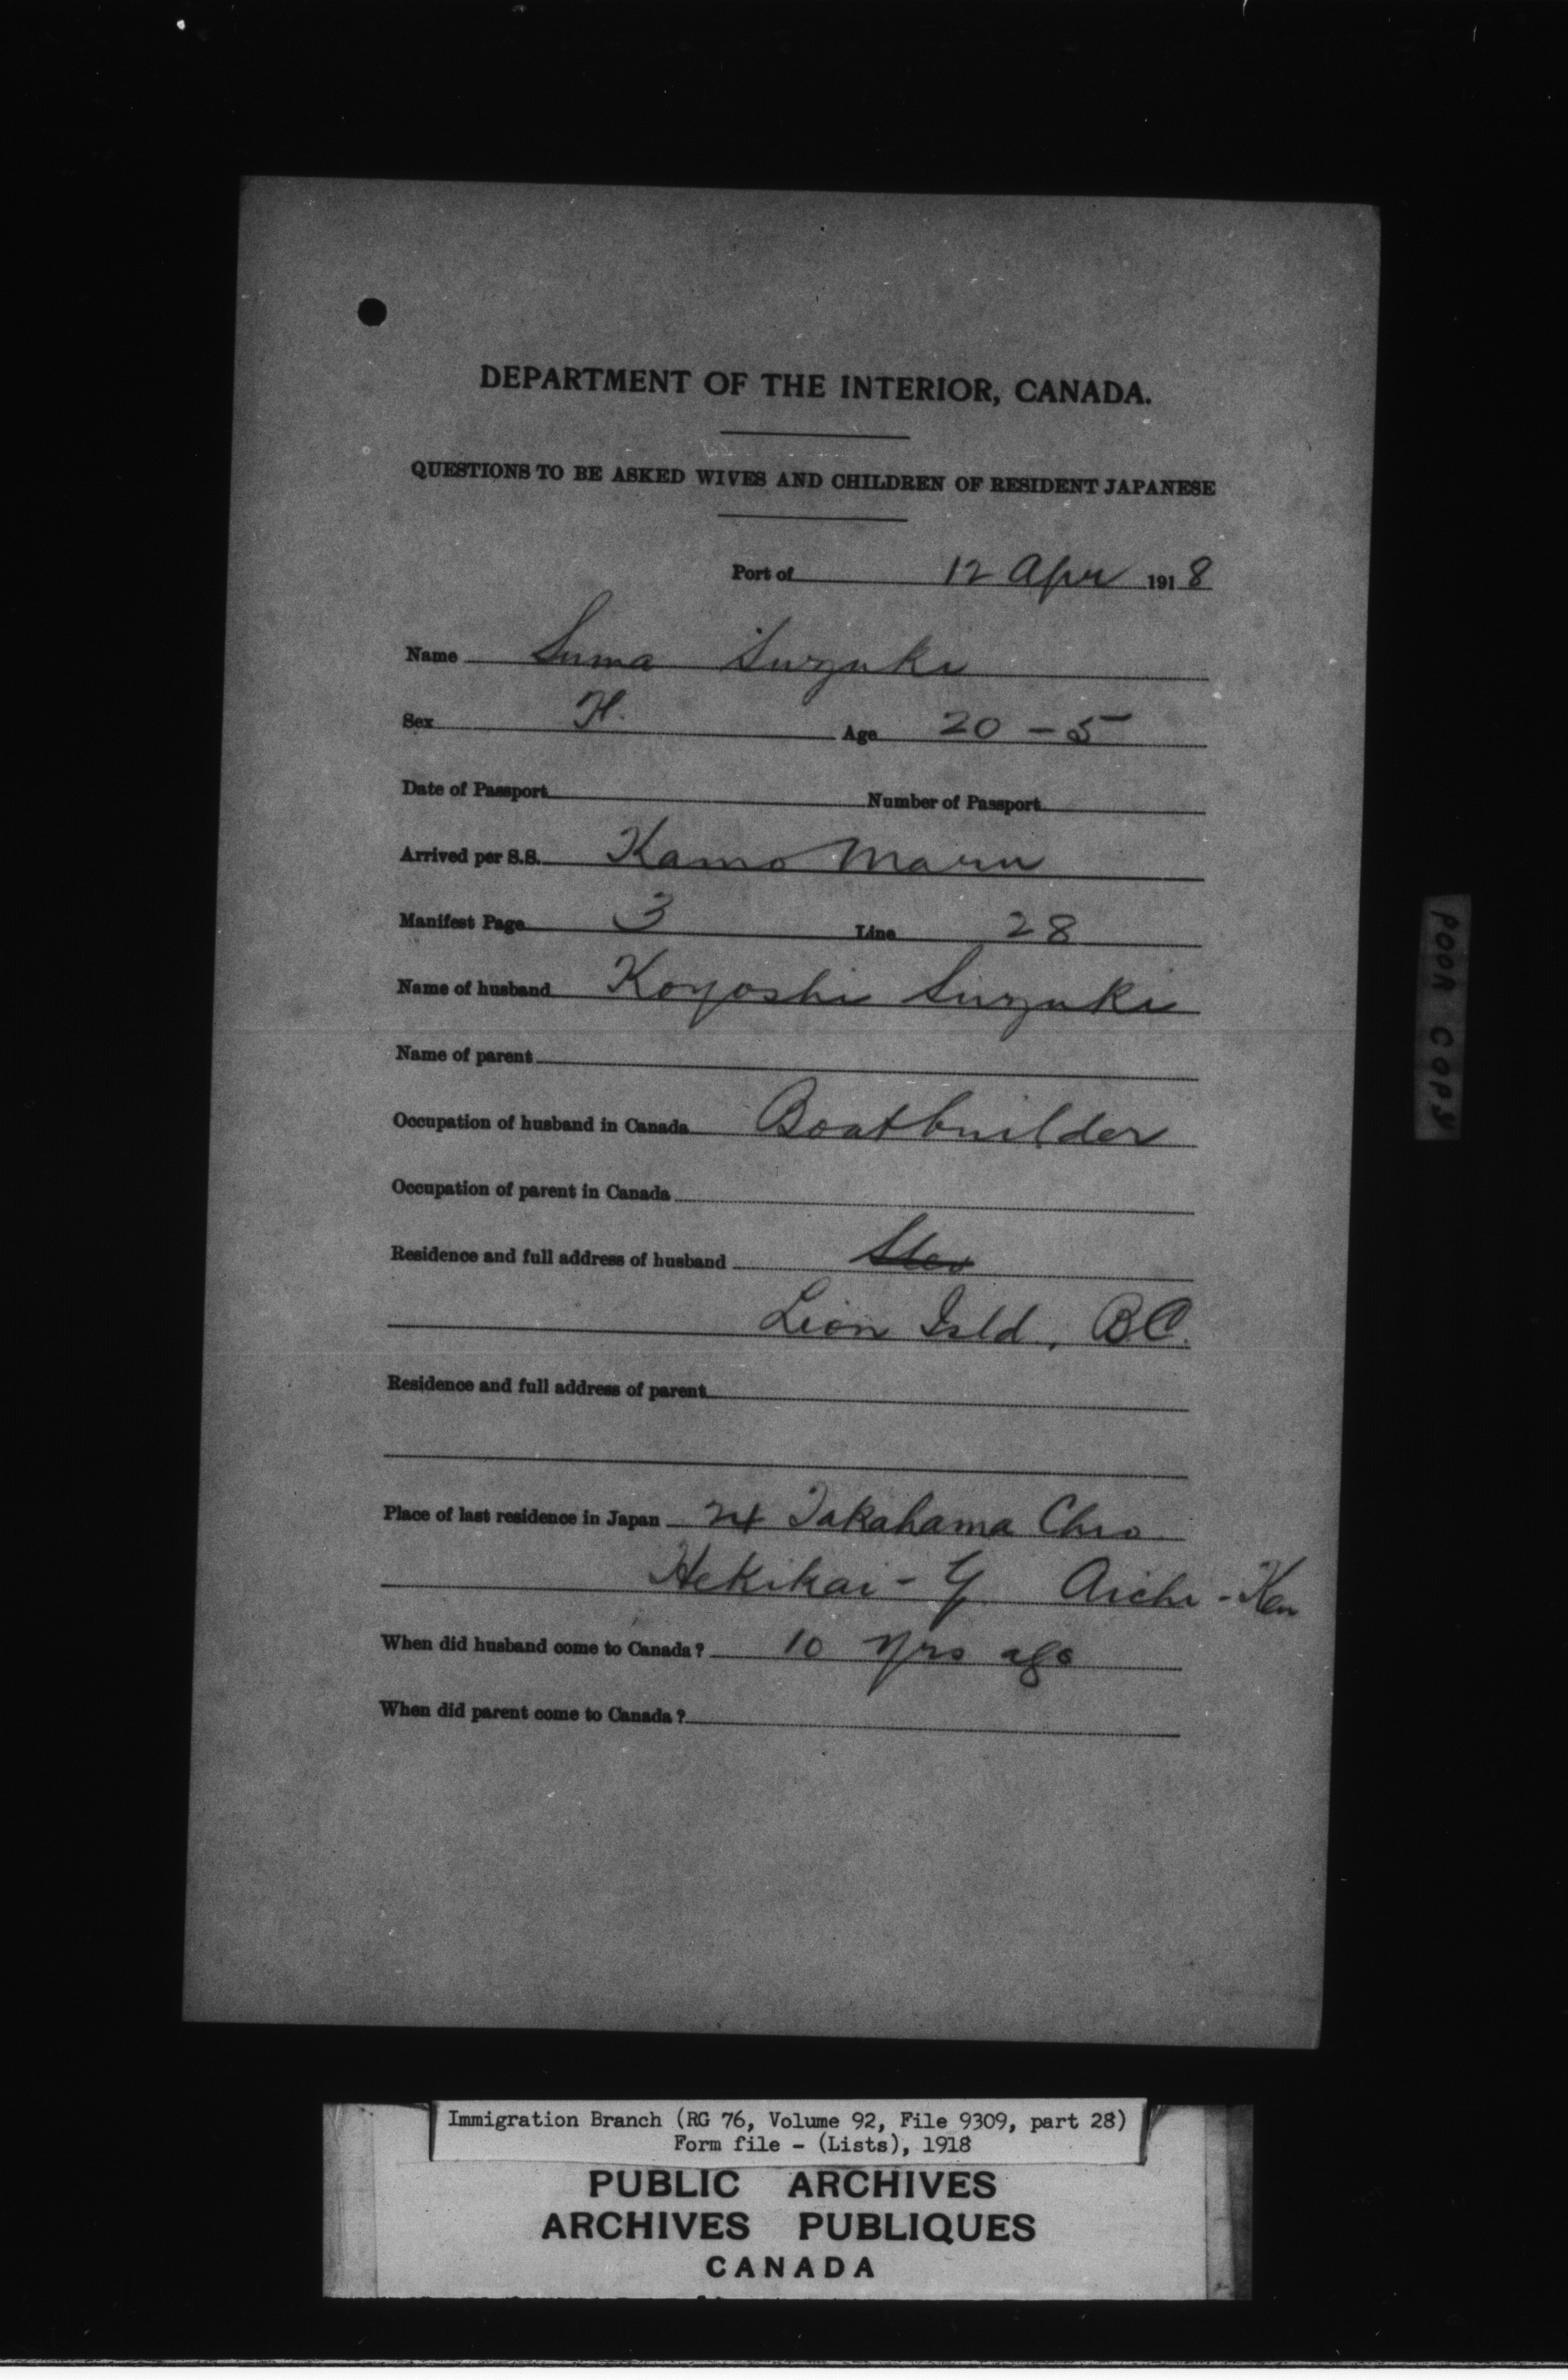 DEPARTMENT OF THE INTERIOR, CANADA.
QUESTIONS TO BE ASKED WIVES AND CHILDREN OF RESIDENT JAPANESE
Port of 12 Apr 1918
Name Suma Suzuki
Sex F. Age 20 - 5
Date of Passport Number of Passport
Arrived per S.S. Kamo Maru
Manifest Page 3 Line 28
Name of husband Koyoshi Suzuki
Name of parent
Occupation of husband in Canada Boatbuilder
Occupation of parent in Canada
Residence and full address of husband Stev
Lion Isld, BC.
Residence and full address of parent
Place of last residence in Japan 24 Takahama Cho
Hekikai - G Aichi - Ken
When did husband come to Canada? 10 yrs ago
When did parent come to Canada?
POOR COPY
Immigration Branch (RG 76, Volume 92, File 9309, part 28)
Form file - (Lists), 1918
PUBLIC ARCHIVES
ARCHIVES PUBLIQUES
CANADA